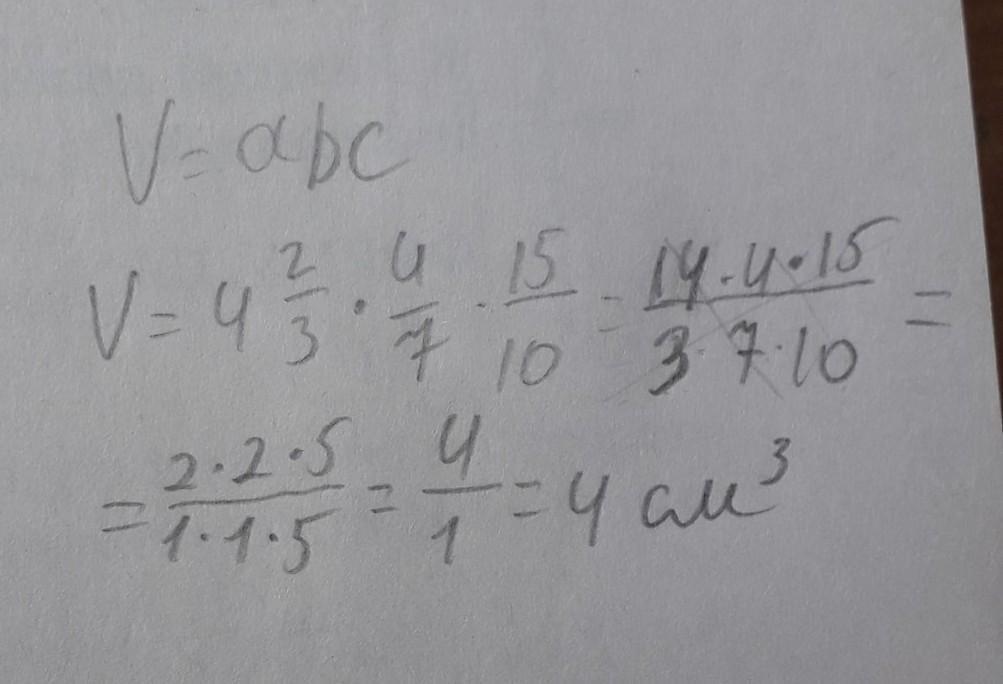 V = abc
V = 4 2/3 · 4/7 · 15/10 = 14·4·15/3·7·10 =
= 2·2·5/1·1·5 = 4/1 = 4 см³